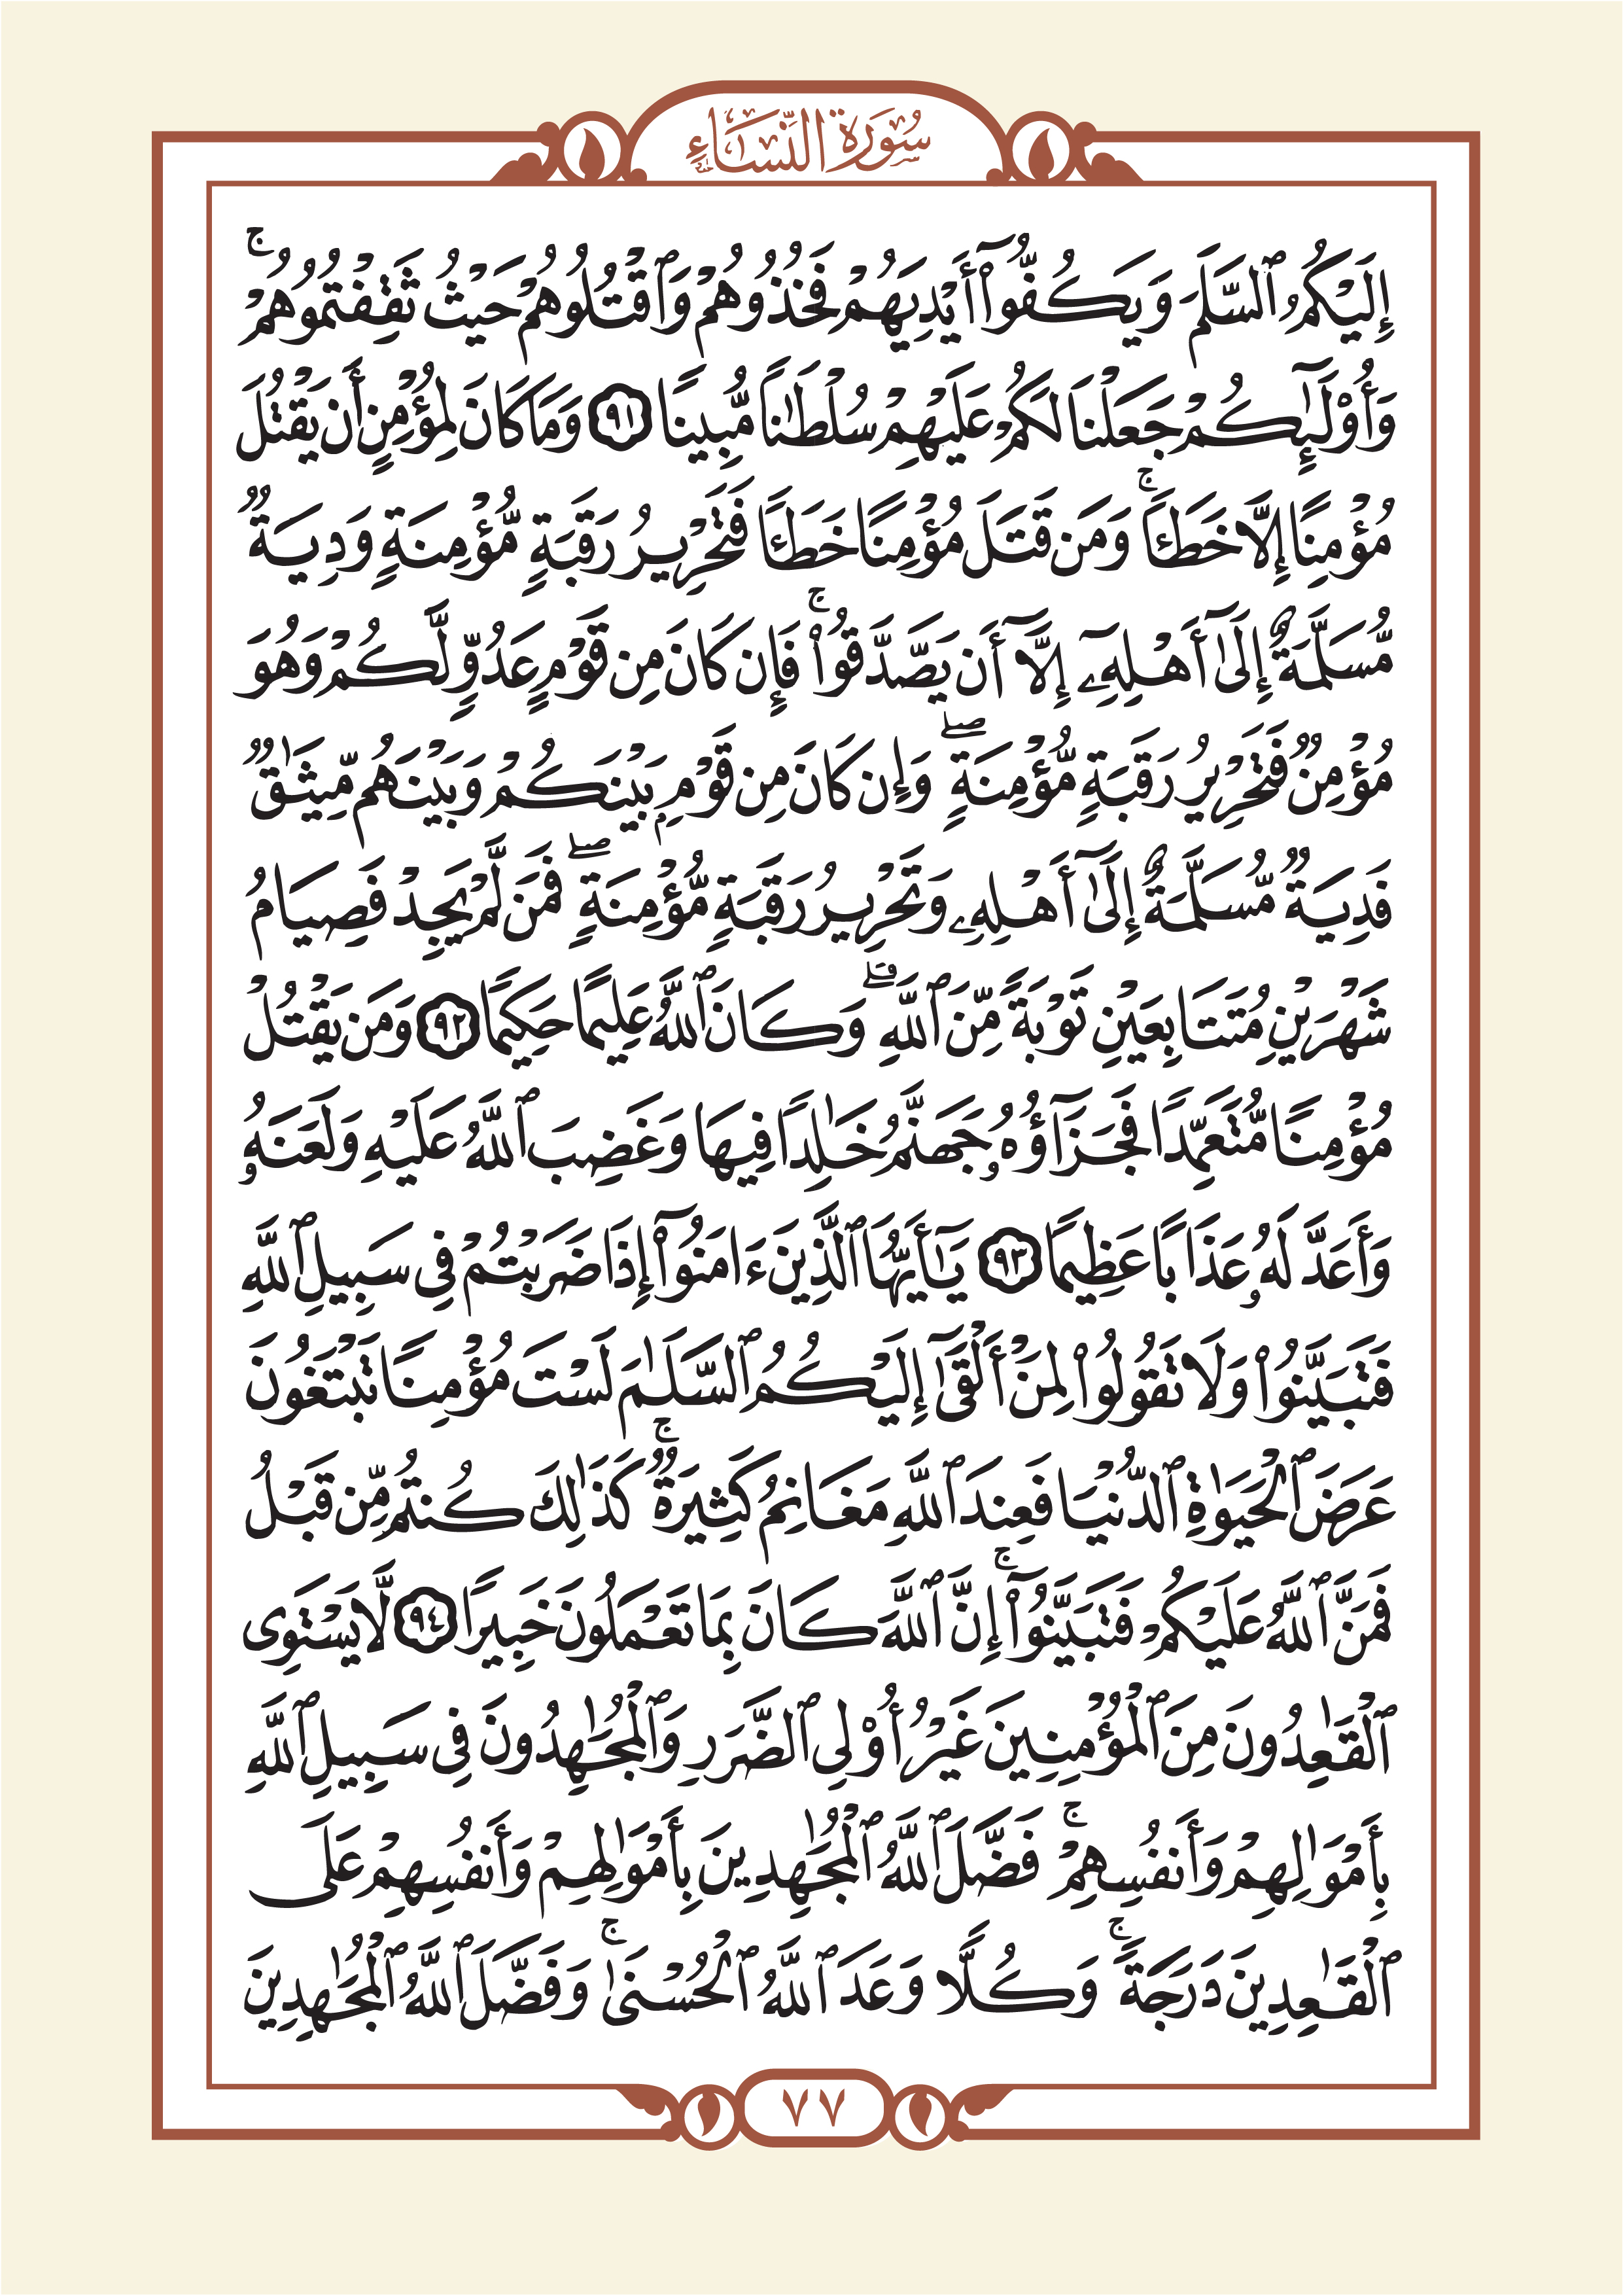 سُورَةُ النِّسَاءِ
إِلَيْكُمُ ٱلسَّلَمَ وَيَكُفُّوٓا۟ أَيْدِيَهُمْ فَخُذُوهُمْ وَٱقْتُلُوهُمْ حَيْثُ ثَقِفْتُمُوهُمْ ۚ
وَأُو۟لَـٰٓئِكُمْ جَعَلْنَا لَكُمْ عَلَيْهِمْ سُلْطَـٰنًا مُّبِينًا ٩١ وَمَا كَانَ لِمُؤْمِنٍ أَن يَقْتُلَ
مُؤْمِنًا إِلَّا خَطَـًٔا ۚ وَمَن قَتَلَ مُؤْمِنًا خَطَـًٔا فَتَحْرِيرُ رَقَبَةٍ مُّؤْمِنَةٍ وَدِيَةٌ
مُّسَلَّمَةٌ إِلَىٰٓ أَهْلِهِۦٓ إِلَّآ أَن يَصَّدَّقُوا۟ ۚ فَإِن كَانَ مِن قَوْمٍ عَدُوٍّ لَّكُمْ وَهُوَ
مُؤْمِنٌ فَتَحْرِيرُ رَقَبَةٍ مُّؤْمِنَةٍ ۖ وَإِن كَانَ مِن قَوْمٍۭ بَيْنَكُمْ وَبَيْنَهُم مِّيثَـٰقٌ
فَدِيَةٌ مُّسَلَّمَةٌ إِلَىٰٓ أَهْلِهِۦ وَتَحْرِيرُ رَقَبَةٍ مُّؤْمِنَةٍ ۖ فَمَن لَّمْ يَجِدْ فَصِيَامُ
شَهْرَيْنِ مُتَتَابِعَيْنِ تَوْبَةً مِّنَ ٱللَّهِ ۗ وَكَانَ ٱللَّهُ عَلِيمًا حَكِيمًا ٩٢ وَمَن يَقْتُلْ
مُؤْمِنًا مُّتَعَمِّدًا فَجَزَآؤُهُۥ جَهَنَّمُ خَـٰلِدًا فِيهَا وَغَضِبَ ٱللَّهُ عَلَيْهِ وَلَعَنَهُۥ
وَأَعَدَّ لَهُۥ عَذَابًا عَظِيمًا ٩٣ يَـٰٓأَيُّهَا ٱلَّذِينَ ءَامَنُوٓا۟ إِذَا ضَرَبْتُمْ فِى سَبِيلِ ٱللَّهِ
فَتَبَيَّنُوا۟ وَلَا تَقُولُوا۟ لِمَنْ أَلْقَىٰٓ إِلَيْكُمُ ٱلسَّلَـٰمَ لَسْتَ مُؤْمِنًا تَبْتَغُونَ
عَرَضَ ٱلْحَيَوٰةِ ٱلدُّنْيَا فَعِندَ ٱللَّهِ مَغَانِمُ كَثِيرَةٌ ۚ كَذَٰلِكَ كُنتُم مِّن قَبْلُ
فَمَنَّ ٱللَّهُ عَلَيْكُمْ فَتَبَيَّنُوٓا۟ ۚ إِنَّ ٱللَّهَ كَانَ بِمَا تَعْمَلُونَ خَبِيرًا ٩٤ لَّا يَسْتَوِى
ٱلْقَـٰعِدُونَ مِنَ ٱلْمُؤْمِنِينَ غَيْرُ أُو۟لِى ٱلضَّرَرِ وَٱلْمُجَـٰهِدُونَ فِى سَبِيلِ ٱللَّهِ
بِأَمْوَٰلِهِمْ وَأَنفُسِهِمْ ۚ فَضَّلَ ٱللَّهُ ٱلْمُجَـٰهِدِينَ بِأَمْوَٰلِهِمْ وَأَنفُسِهِمْ عَلَى
ٱلْقَـٰعِدِينَ دَرَجَةً ۚ وَكُلًّا وَعَدَ ٱللَّهُ ٱلْحُسْنَىٰ ۚ وَفَضَّلَ ٱللَّهُ ٱلْمُجَـٰهِدِينَ
٧٧